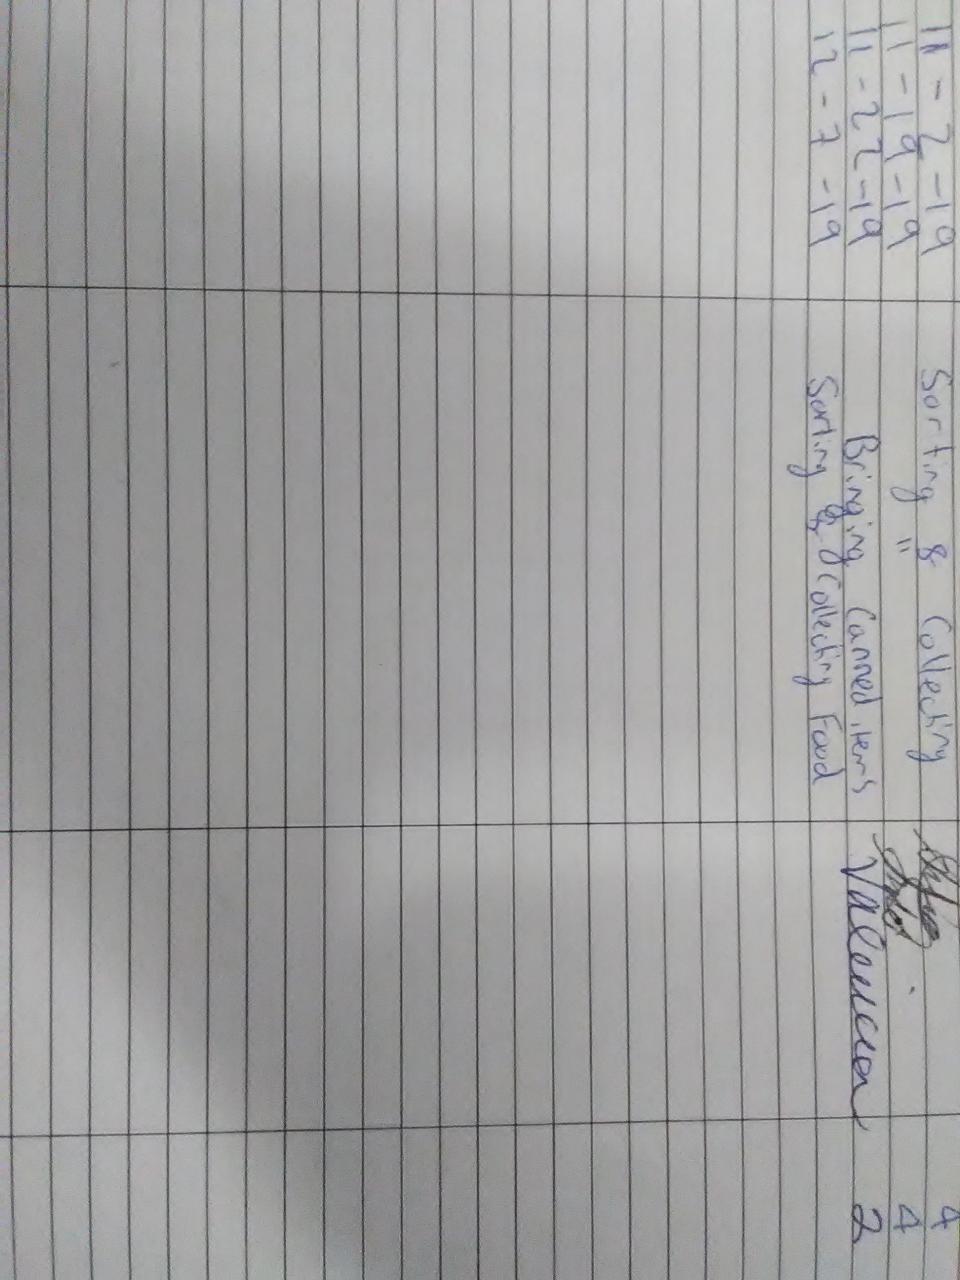 11 - 2 - 19 Sorting & Collecting 4
11 - 19 - 19 " 4
11 - 22 - 19 Bringing Canned items 2
12 - 7 - 19 Sorting & Collecting Food